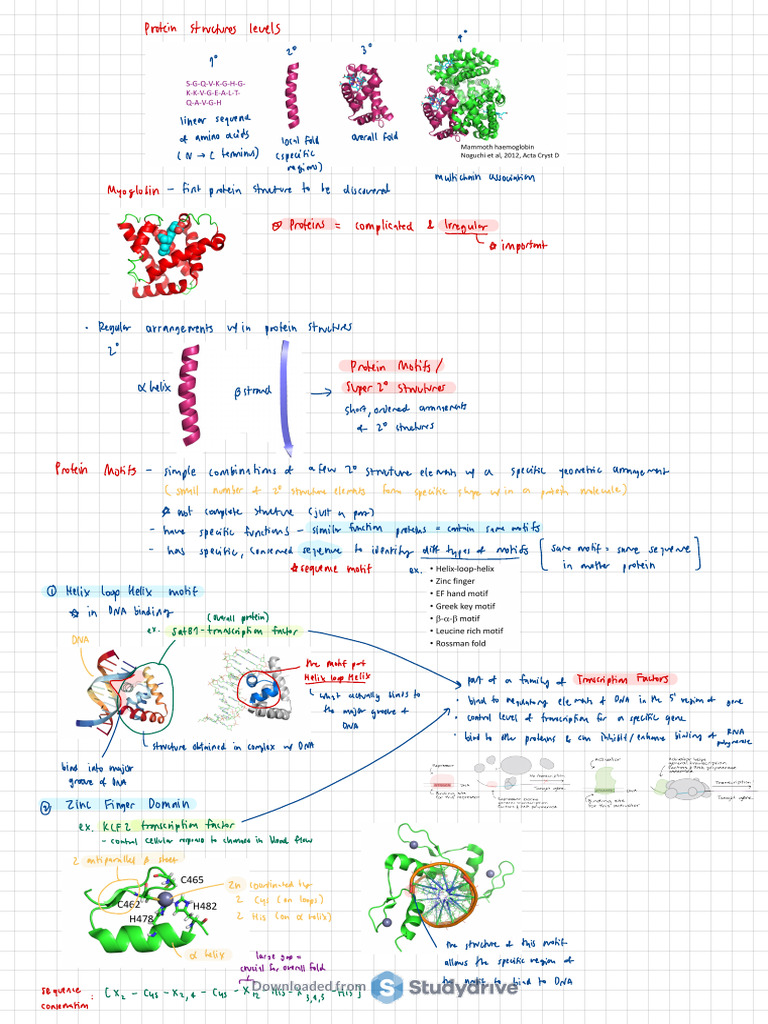 Protein structures levels
1° 2° 3° 4°
S-G-Q-V-K-G-H-G-
K-K-V-G-E-A-L-T-
Q-A-V-G-H
linear sequence
of amino acids
(N → C terminus)
local fold
(specific
regions)
overall fold
Mammoth haemoglobin
Noguchi et al, 2012, Acta Cryst D
multichain association
Myoglobin – first protein structure to be discovered
Proteins = complicated & Irregular
important
• Regular arrangements w/in protein structures
2°
α helix
β strand
Protein Motifs /
Super 2° Structures
short, ordered arrangements
of 2° structures
Protein Motifs – simple combinations of a few 2° structure elements w/ a specific geometric arrangement
(small number of 2° structure elements form specific shape w/in a protein molecule)
not complete structure (just a part)
– have specific functions – similar function proteins = contain same motifs
– has specific, conserved sequence to identify diff types of motifs [same motif = same sequence
in another protein]
sequence motif
ex.
• Helix-loop-helix
• Zinc finger
• EF hand motif
• Greek key motif
• β-α-β motif
• Leucine rich motif
• Rossman fold
① Helix loop Helix motif
in DNA binding
(overall protein)
ex. SatB1-transcription factor
DNA
the motif part
Helix loop Helix
what actually binds to
the major groove of
DNA
structure obtained in complex w/ DNA
bind into major
groove of DNA
part of a family of Transcription Factors
• bind to regulatory elements of DNA in the 5' region of gene
• control level of transcription for a specific gene
• bind to other proteins & can inhibit/enhance binding of RNA
polymerase
Repressor
DNA
Binding site
for the repressor
No transcription
Target gene
Activator
DNA
Binding site
for the activator
Transcription
Target gene
② Zinc Finger Domain
ex. KLF2 transcription factor
– control cellular response to changes in blood flow
2 antiparallel β sheet
C465
C462
H482
H478
Zn coordinated by
2 Cys (on loops)
2 His (on α helix)
α helix
the structure of this motif
allows the specific region of
the motif to bind to DNA
large gap =
crucial for overall fold
sequence
conservation : [X2 – Cys – X2,4 – Cys – X12 – His – X3,4,5 – His]
Downloaded from Studydrive